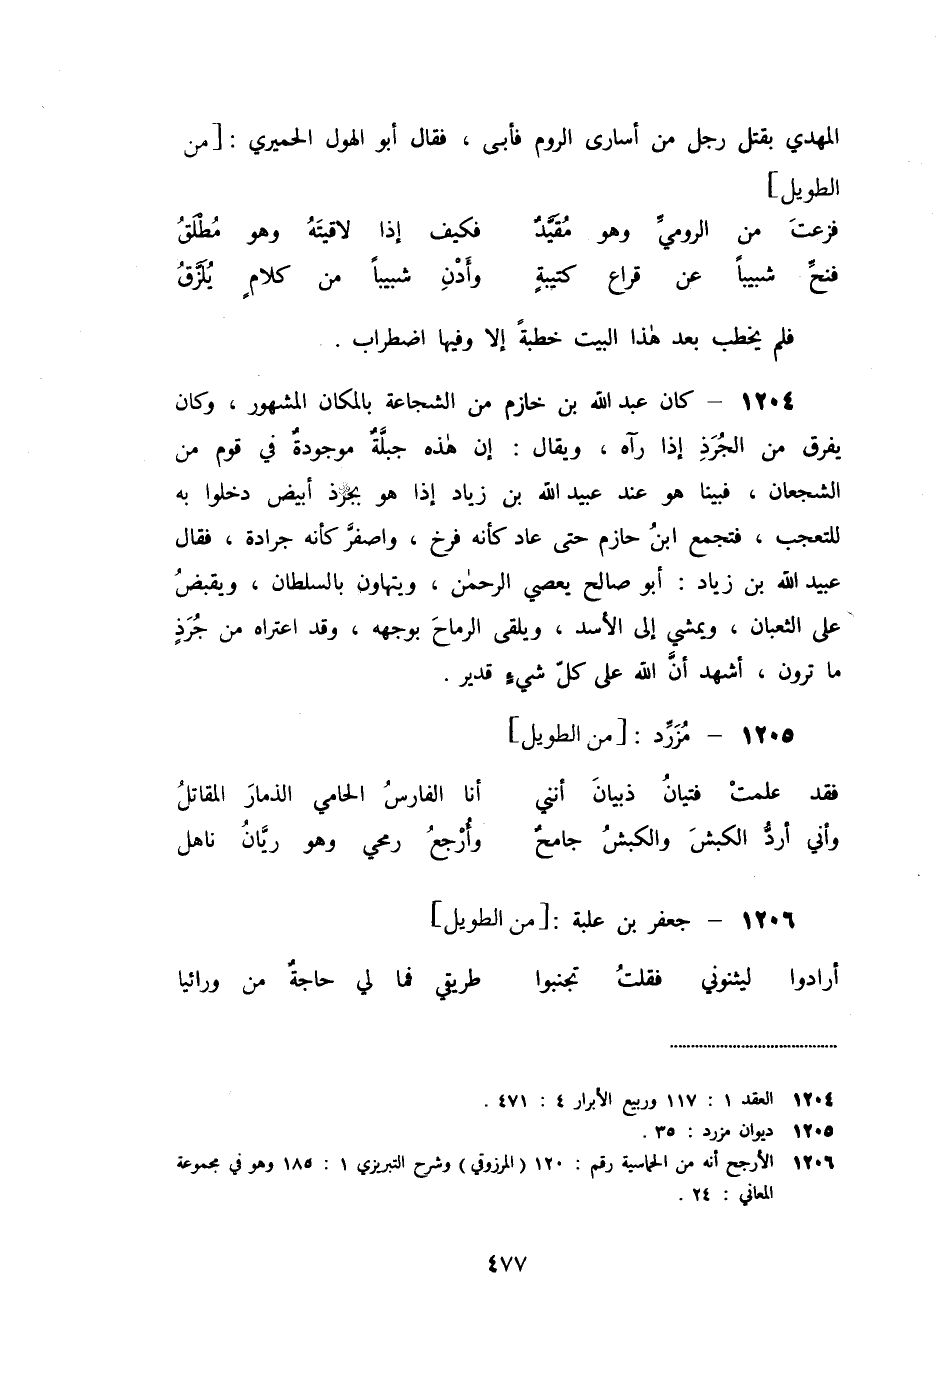 المهدي بقتل رجل من أسارى الروم فأبى ، فقال أبو الهول الحميري : [من
الطويل]
فزعتَ من الروميِّ وهو مُقَيَّدٌ فكيف إذا لاقيتَهُ وهو مُطْلَقُ
فنحِّ شبيباً عن قراع كتيبةٍ وأَدْنِ شبيباً من كلامٍ يُلَزَّقُ
فلم يخطب بعد هٰذا البيت خطبةً إلا وفيها اضطراب .
١٢٠٤ – كان عبد الله بن خازم من الشجاعة بالمكان المشهور ، وكان
يفرق من الجُرَذِ إذا رآه ، ويقال : إن هٰذه جبلَّةٌ موجودةٌ في قوم من
الشجعان ، فبينا هو عند عبيد الله بن زياد إذا هو بجرذ أبيض دخلوا به
للتعجب ، فتجمع ابنُ حازم حتى عاد كأنه فرخ ، واصفرَّ كأنه جرادة ، فقال
عبيد الله بن زياد : أبو صالح يعصي الرحمٰن ، ويتهاون بالسلطان ، ويقبضُ
على الثعبان ، ويمشي إلى الأسد ، ويلقى الرماحَ بوجهه ، وقد اعتراه من جُرَذٍ
ما ترون ، أشهد أنَّ الله على كلّ شيءٍ قدير .
١٢٠٥ – مُزَرِّد : [من الطويل]
فقد علمتْ فتيانُ ذبيانَ أنني أنا الفارسُ الحامي الذمارَ المقاتلُ
وأني أردُّ الكبشَ والكبشُ جامحٌ وأُرْجعُ رمحي وهو ريَّانُ ناهل
١٢٠٦ – جعفر بن علبة : [من الطويل]
أرادوا ليثنوني فقلتُ تجنبوا طريقي فما لي حاجةٌ من ورائيا
١٢٠٤ العقد ١ : ١١٧ وربيع الأبرار ٤ : ٤٧١ .
١٢٠٥ ديوان مزرد : ٣٥ .
١٢٠٦ الأرجح أنه من الحماسية رقم : ١٢٠ (المرزوقي) وشرح التبريزي ١ : ١٨٥ وهو في مجموعة
المعاني : ٢٤ .
٤٧٧